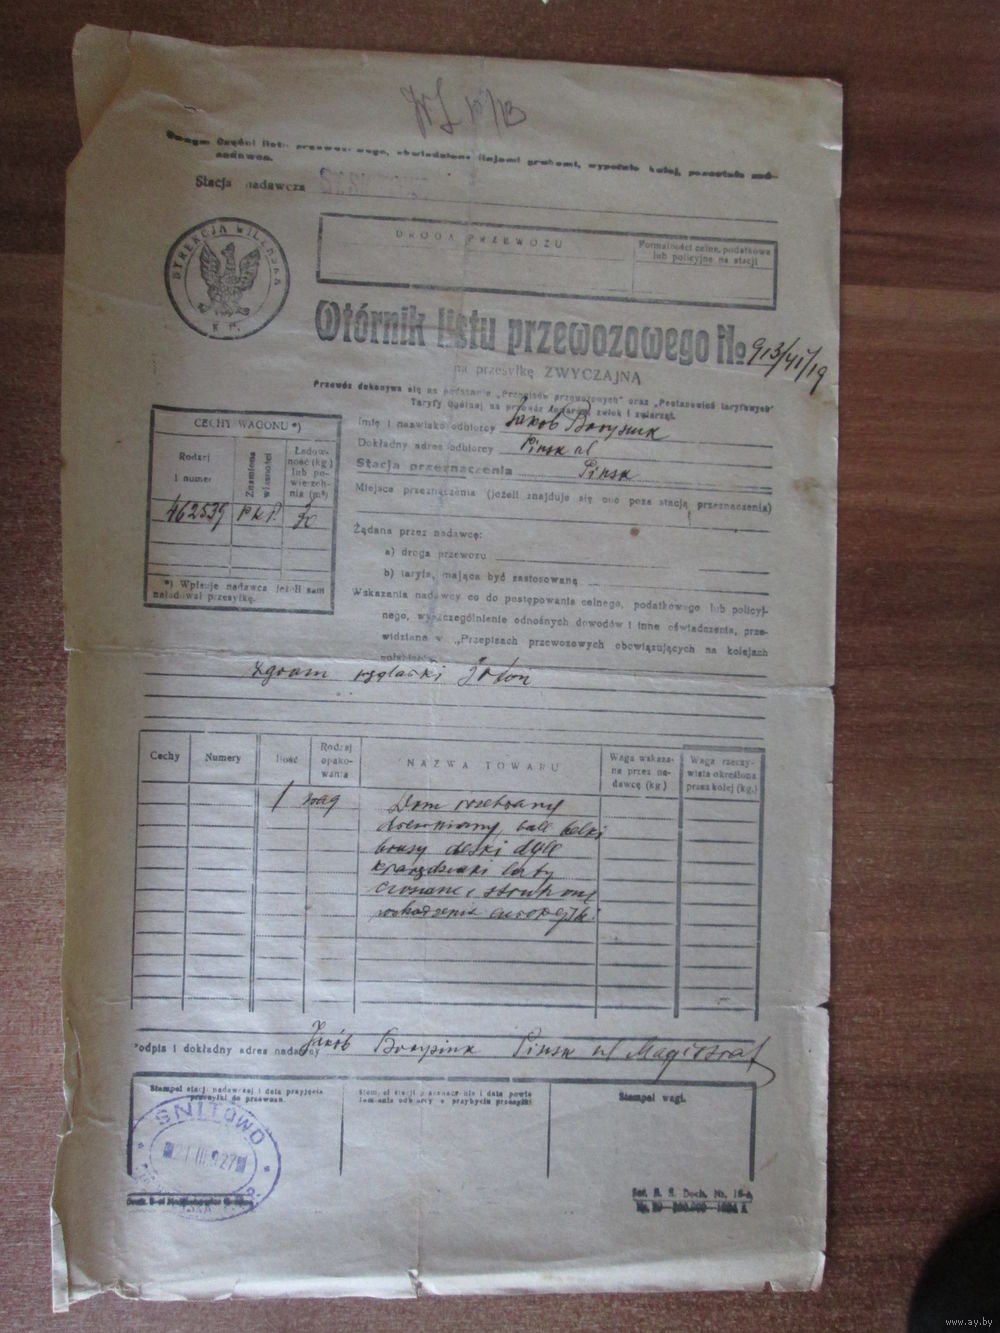 części listu przewozowego, obwiedzione linjami grubemi, wypełnia kolej, pozostałe zaś
nadawca.
Stacja nadawcza
DYREKCJA WILEŃSKA
K. P.
DROGA PRZEWOZU
Formalności celne, podatkowe
lub policyjne na stacji
Wtórnik listu przewozowego № 913/41/19
na przesyłkę ZWYCZAJNĄ
Przewóz dokonywa się na podstawie „Przepisów przewozowych" oraz „Postanowień taryfowych"
Taryfy Ogólnej na przewóz towarów, zwłok i zwierząt.
CECHY WAGONU *)
Rodzaj
i numer
Znamiona
własności
Ładow-
ność (kg)
lub po-
wierzch-
nia (m²)
462539 P.K.P.
*) Wpisuje nadawca jeżeli sam
naładował przesyłkę.
Imię i nazwisko odbiorcy Jakób
Dokładny adres odbiorcy Pinsk ul
Stacja przeznaczenia Pinsk
Miejsce przeznaczenia (jeżeli znajduje się ono poza stacją przeznaczenia)
Żądana przez nadawcę:
a) droga przewozu
b) taryfa, mająca być zastosowaną
Wskazania nadawcy co do postępowania celnego, podatkowego lub policyj-
nego, wyszczególnienie odnośnych dowodów i inne oświadczenia, prze-
widziane w „Przepisach przewozowych obowiązujących na kolejach
Cechy
Numery
Ilość
Rodzaj
opako-
wania
NAZWA TOWARU
Waga wskaza-
na przez na-
dawcę (kg.)
Waga rzeczy-
wista określona
przez kolej (kg.)
1 wag Dom rozebrany
drewniany, bale belki
brusy deski dyle
łaty
podpis i dokładny adres nadawcy Jakób Pinsk ul Magistrat
Stempel stacji nadawczej i data przyjęcia
przesyłki do przewozu.
Stempel stacji przeznaczenia i data powia-
domienia odbiorcy o przybyciu przesyłki
Stempel wagi.
SNITOWO
21 III 927
www.ay.by